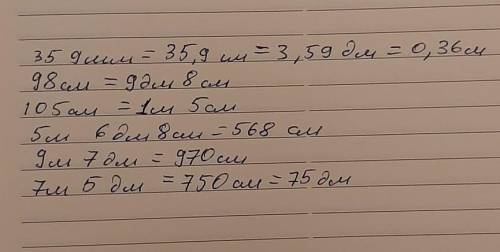 359мм = 35,9 см = 3,59 дм = 0,36м
98см = 9дм 8см
105см = 1м 5см
5м 6дм 8см = 568 см
9м 7дм = 970см
7м 5 дм = 750см = 75дм